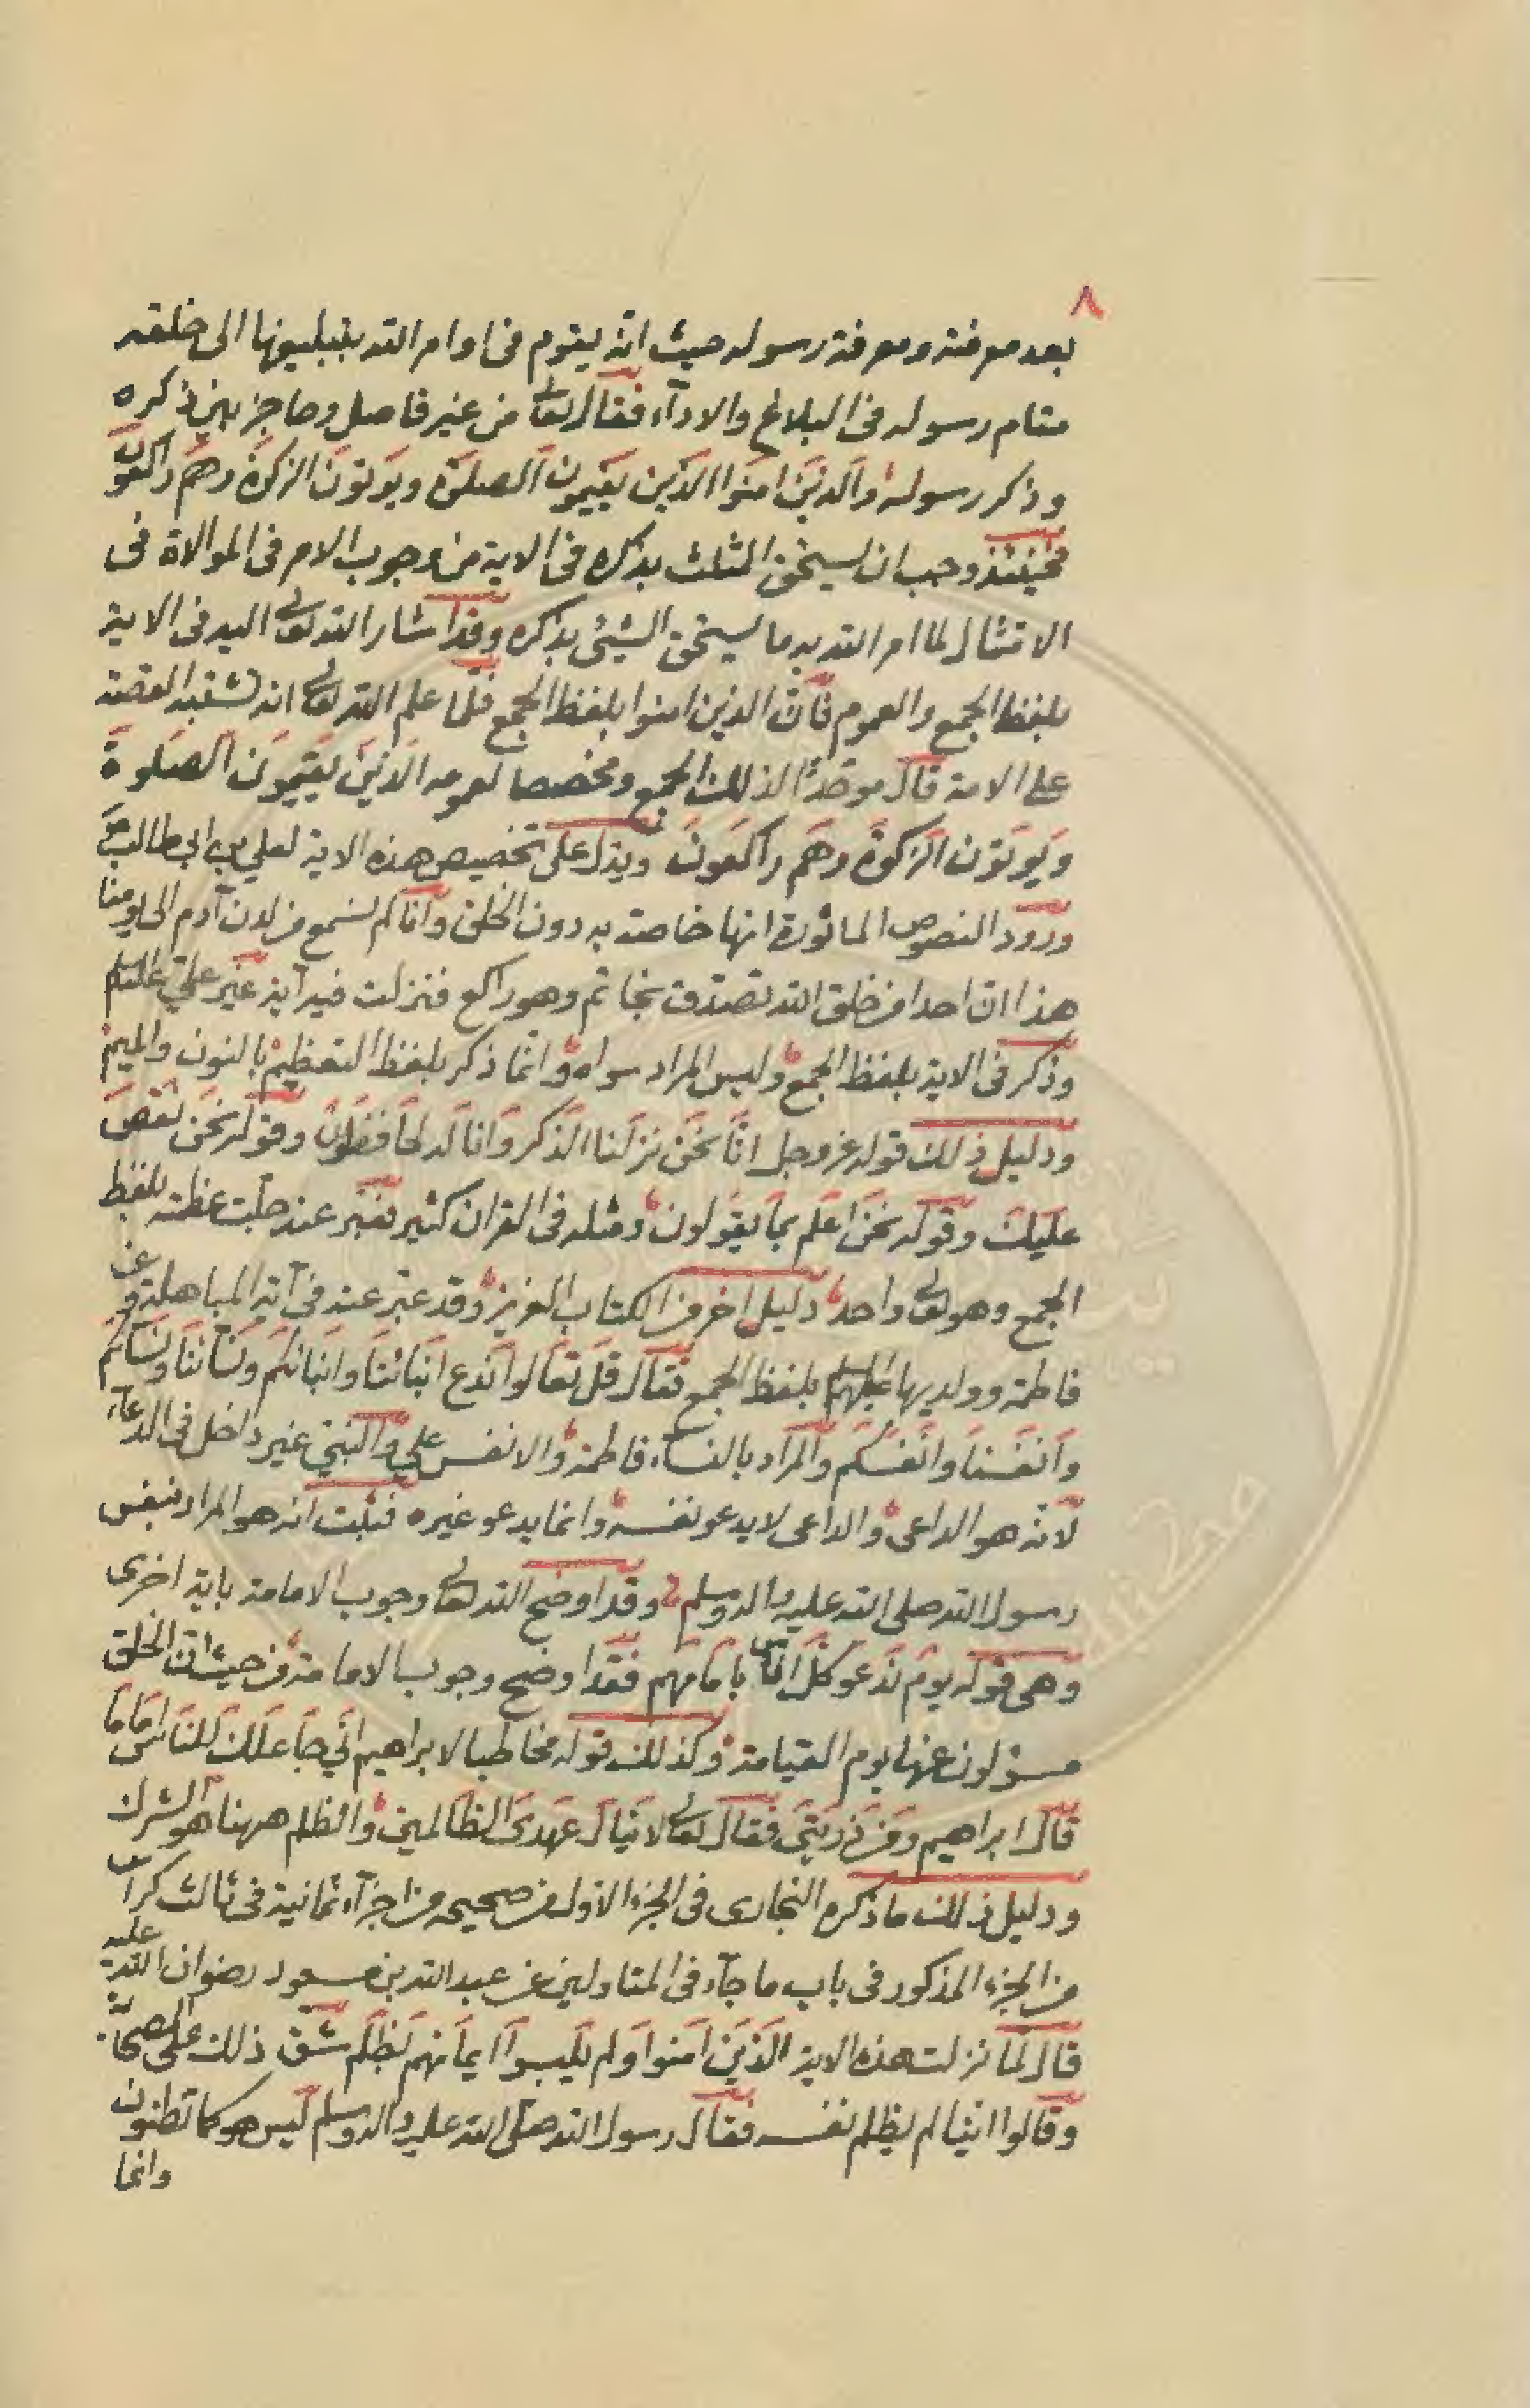 ٨
بعد معرفته ومعرفة رسوله حيث انّه يقوم فى اوامر الله بتبليغها الى خلقه
مقام رسوله فى البلاغ والادآء فقال تعالى من غير فاصل وحاجز بين ذكره
وذكر رسوله والّذين امنوا الّذين يقيمون الصلوة ويؤتون الزكوة وهم راكعون
فحينئذ وجب ان يستحق الثلث بذكره فى الاية من وجوب الامر فى الموالاة فى
الامتثال لما امر الله به ما يستحق الشيئ بذكره وقد اشار الله تعالى اليه فى الاية
بلفظ الجمع والعموم فانّ الذين امنوا بلفظ الجمع فلمّا علم الله تعالى انه تشتبه القصة
على الامة قال موحّدًا لذلك الجمع ومخصصا لعمومه الّذين يقيمون الصلوة
ويؤتون الزكوة وهم راكعون ويدل على تخصيص هذه الاية لعلي بن ابي طالب ع
ورود النصوص الماثورة انها خاصة به دون الخلق وانّا لم نسمع من لدن آدم الى يومنا
هذا انّ احدا من خلق الله تصدّق بخاتم وهو راكع فنزلت فيه آية غير علي عليه السلم
وذكر فى الاية بلفظ الجمع وليس المراد سواه وانّما ذكر بلفظ التعظيم بالنون والميم
ودليل ذلك قوله عز وجل انّا نحن نزّلنا الذكر وانا له لحافظون وقوله نحن نقص
عليك وقوله نحن اعلم بما يقولون ومثله فى القران كثير يعبّر عند جلّت عظمته بلفظ
الجمع وهو تعالى واحد دليل اخر من الكتاب العزيز وقد عبّر عنه فى آية المباهلة وعن
فاطمة وولديها عليهم السلم بلفظ الجمع فقال قل تعالوا ندع ابنائنا وابنائكم ونسآئنا ونسآئكم
وانفسنا وانفسكم والمراد بالنسآء فاطمة والانفس علي والنبيّ غير داخل فى الدعآء
لانّه هو الداعى والداعى لا يدعو نفسه وانما يدعو غيره فثبت انه هو المراد بنفس
رسول الله صلى الله عليه واله وسلم وقد اوضح الله تعالى وجوب الامامة باية اخرى
وهى قوله يوم ندعو كلّ اناس بامامهم فقد اوضح وجوب الامامة من حيث انّ الخلق
مسؤلون عنها يوم القيامة وكذلك قوله مخاطبا لابراهيم انّي جاعلك للناس اماما
قال ابراهيم ومن ذرّيتي فقال تعالى لا ينال عهدى الظالمين والظلم ههنا هو الشرك
ودليل ذلك ما ذكره البخارى فى الجزء الاول من صحيحه من اجزآء ثمانية فى ثالث كراس
من الجزء المذكور فى باب ما جآء فى المتاولين عن عبد الله بن مسعود رضوان الله عليه
قال لمّا نزلت هذه الاية الّذين امنوا ولم يلبسوا ايمانهم بظلم شق ذلك على الصحابة
وقالوا ايّنا لم يظلم نفسه فقال رسول الله صلّى الله عليه واله وسلم ليس هو كما تظنون
وانما